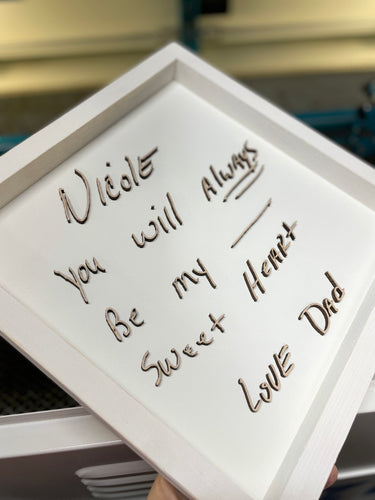 Nicole
You will Always
Be my
Sweet Heart
Love Dad